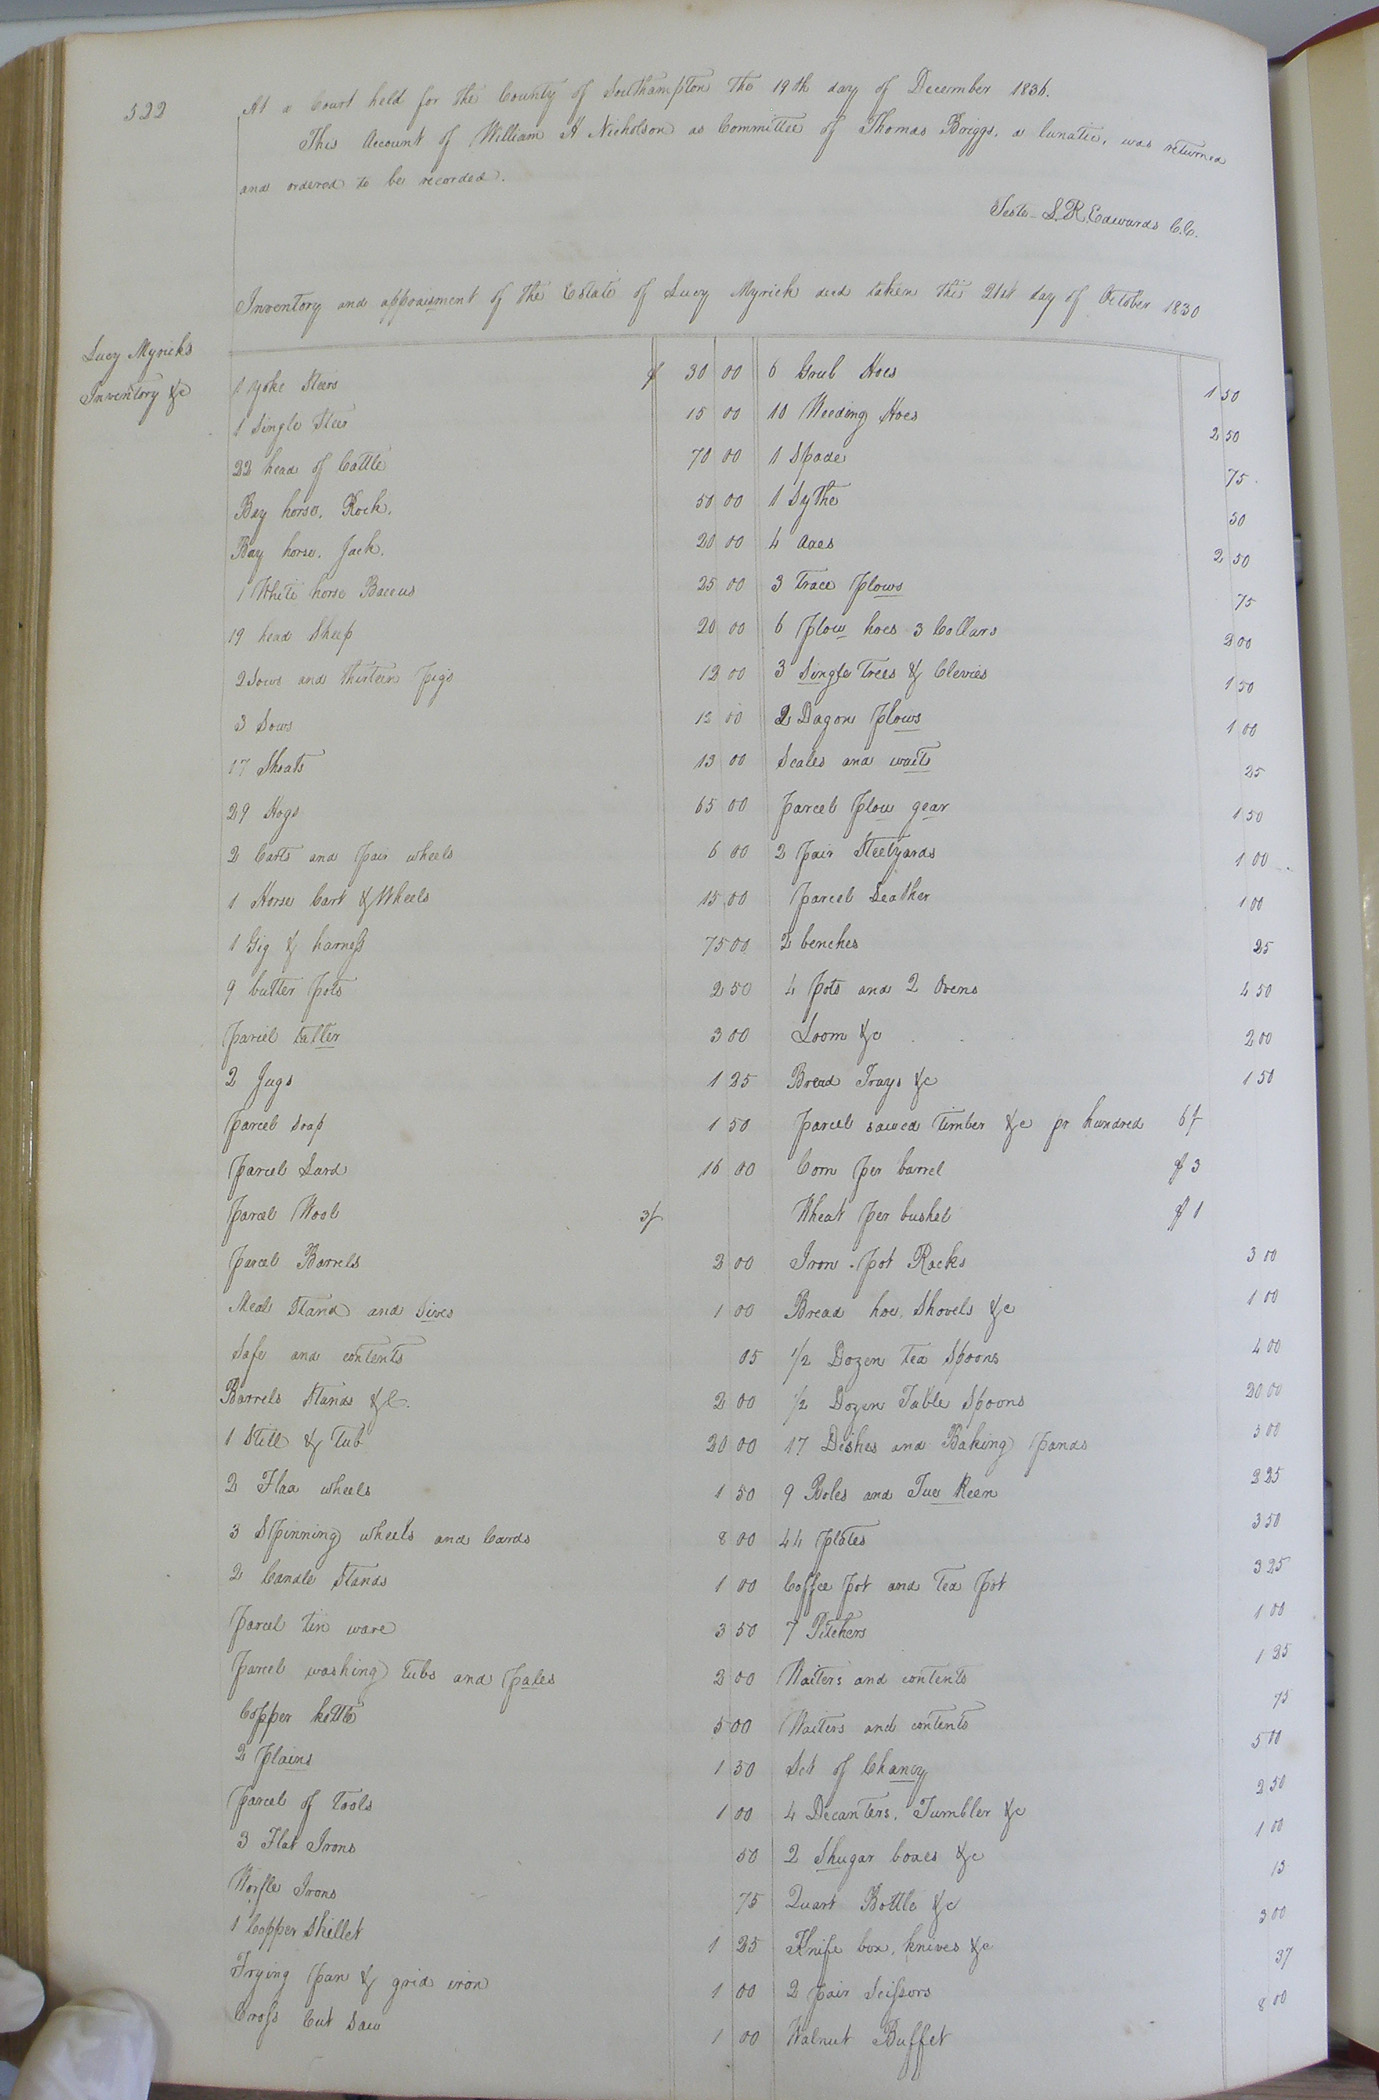 522
At a Court held for the County of Southampton the 19th day of December 1836.
This Account of William H Nicholson as Committee of Thomas Briggs, a lunatic, was returned
and ordered to be recorded.
Teste - L. R. Edwards C.C.
Inventory and appraisment of the Estate of Lucy Myrick decd taken this 21st day of October 1830
Lucy Myricks
Inventory &c
1 yoke Steers $ 30 00
1 Single Steer 15 00
22 head of Cattle 70 00
Bay horse. Rock. 50 00
Bay horse. Jack. 20 00
1 White horse Baccus 25 00
19 head Sheep 20 00
2 Sows and thirteen pigs 12 00
3 Sows 12 00
17 Shoats 13 00
29 Hogs 65 00
2 Carts and pair wheels 6 00
1 Horse Cart & Wheels 15 00
1 Gig & harness 75 00
9 butter pots 2 50
parcel taller 3 00
2 Jugs 1 25
parcel Soap 1 50
parcel Lard 16 00
parcel Wool 3/
parcel Barrels 2 00
Meal Stand and Sives 1 00
Safe and contents 05
Barrels Stands &C. 2 00
1 Still & Tub 20 00
2 Flax wheels 1 50
3 Spinning wheels and Cards 8 00
2 Candle Stands 1 00
parcel tin ware 3 50
parcel washing tubs and pales 2 00
Copper kettle 5 00
2 plains 1 50
parcel of Tools 1 00
3 Flat Irons 50
Worfle Irons 75
1 Copper Skillet 1 25
Frying pan & grid iron 1 00
Cross Cut Saw 1 00
6 Grub Hoes 1 50
10 Weeding Hoes 2 50
1 Spade 75
1 Sythe 50
4 axes 2 50
3 Trace plows 75
6 plow hoes 3 Collars 2 00
3 Single Trees & Clevies 1 50
2 Dagon plows 1 00
Scales and waits 25
parcel plow gear 1 50
2 pair Steelyards 1 00
parcel Leather 1 00
2 benches 25
4 pots and 2 Ovens 4 50
Loom &c 2 00
Bread Trays &c 1 50
parcel sawed timber &c pr hundred 6/
Corn per barrel $ 3
Wheat per bushel $ 1
Iron pot Racks 3 00
Bread hoe, Shovels &c 1 00
1/2 Dozen tea Spoons 4 00
1/2 Dozen Table Spoons 20 00
17 Dishes and Baking pands 3 00
9 Boles and Tue Reen 2 25
44 plates 3 50
Coffee pot and tea pot 3 25
7 Pitchers 1 00
Waiters and contents 1 25
Waiters and contents 75
Set of Chancy 5 00
4 Decanters, Tumbler &c 2 50
2 Shugar boxes &c 1 00
Quart Bottle &c 13
Knife box, knives &c 3 00
2 pair Scissors 37
Walnut Buffet 8 00